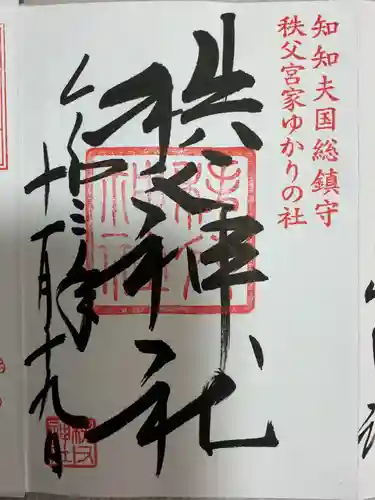 知知夫国総鎮守
秩父宮家ゆかりの社
奉拝
秩父神社
令和三年
十一月十九日